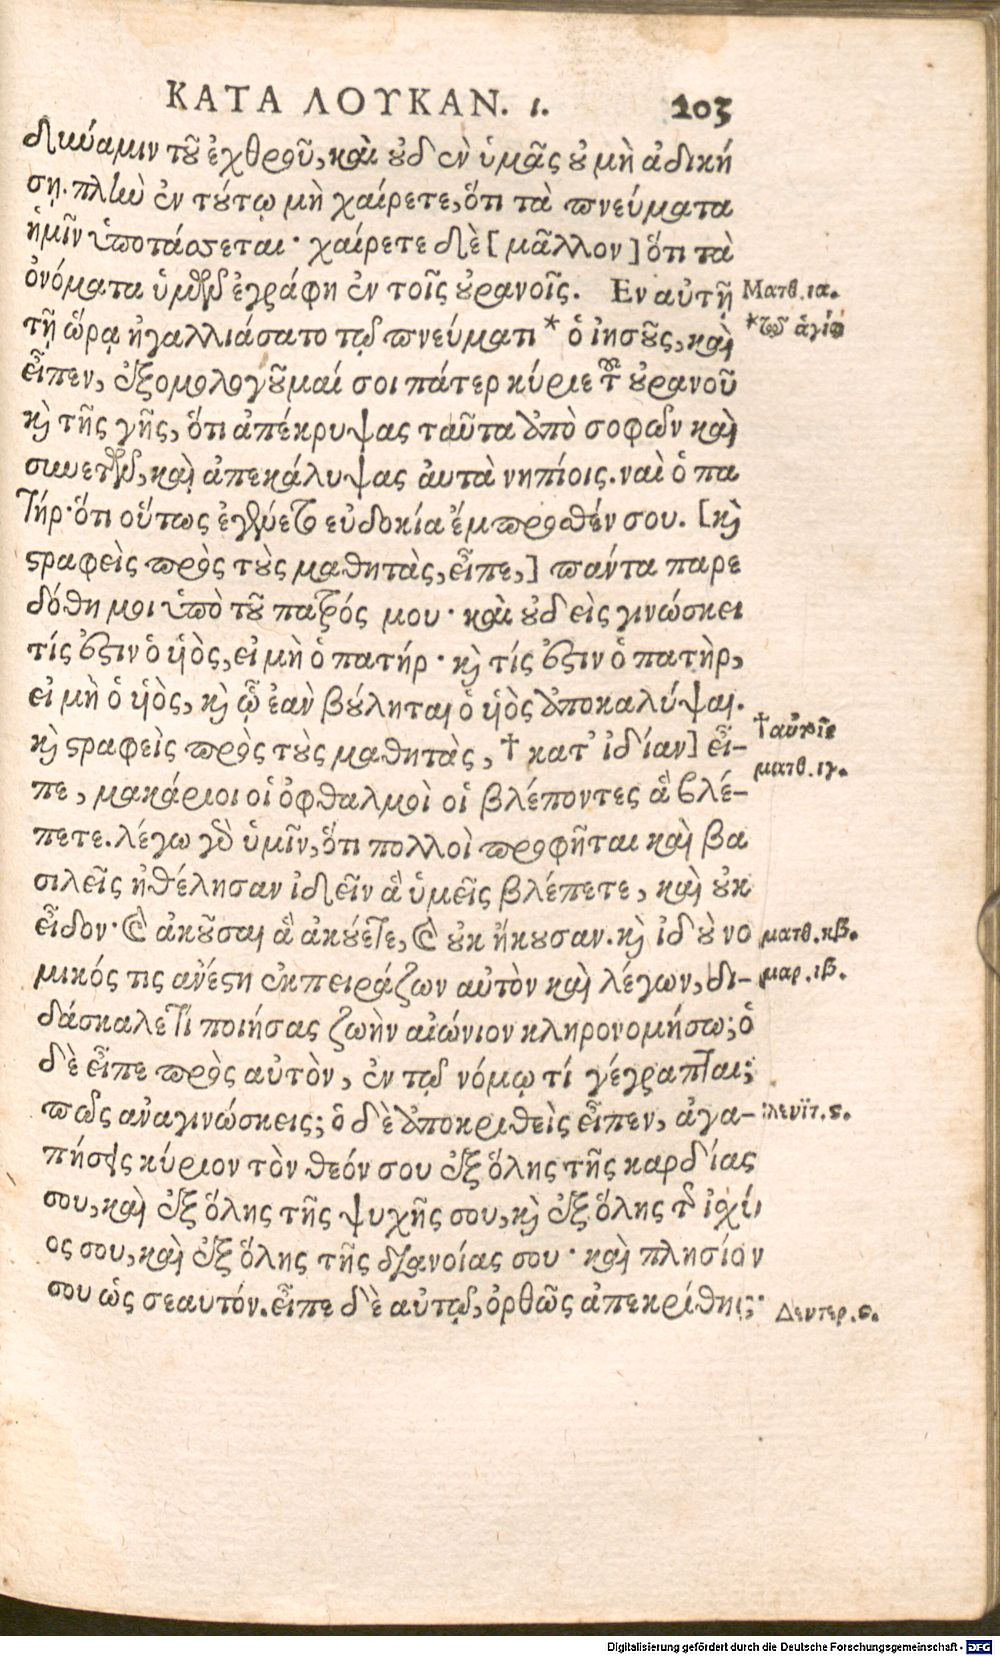 ΚΑΤΑ ΛΟΥΚΑΝ. ι. 203
δυύαμιν τοῦ ἐχθροῦ, καὶ οὐδὲν ὑμᾶς οὐ μὴ ἀδική
σῃ. πλὴν ἐν τούτῳ μὴ χαίρετε, ὅτι τὰ πνεύματα
ἡμῖν ὑποτάσσεται· χαίρετε δὲ [μᾶλλον] ὅτι τὰ
ὀνόματα ὑμῶν ἐγράφη ἐν τοῖς οὐρανοῖς. Εν αὐτῇ
Ματθ. ια.
τῇ ὥρᾳ ἠγαλλιάσατο τῷ πνεύματι * ὁ ἰησοῦς, καὶ
*τῷ ἁγίῳ
εἶπεν, ἐξομολογοῦμαί σοι πάτερ κύριε τοῦ οὐρανοῦ
καὶ τῆς γῆς, ὅτι ἀπέκρυψας ταῦτα ἀπὸ σοφῶν καὶ
συνετῶν, καὶ ἀπεκάλυψας ἀυτὰ νηπίοις. ναὶ ὁ πα
τήρ· ὅτι οὕτως ἐγένετο εὐδοκία ἔμπροσθέν σου. [καὶ
στραφεὶς πρὸς τοὺς μαθητὰς, εἶπε,] πάντα παρε
δόθη μοι ὑπὸ τοῦ πατρός μου· καὶ οὐδεὶς γινώσκει
τίς ἐστιν ὁ υἱὸς, εἰ μὴ ὁ πατήρ· καὶ τίς ἐστιν ὁ πατὴρ,
εἰ μὴ ὁ υἱὸς, καὶ ᾧ ἐαὴ βούληται ὁ υἱὸς ἀποκαλύψαι.
καὶ στραφεὶς πρὸς τοὺς μαθητὰς, † κατ' ἰδίαν] εἶ-
†αὐτοῦ
πε, μακάριοι οἱ ὀφθαλμοὶ οἱ βλέποντες ἃ βλέ-
ματθ. ιγ.
πετε. λέγω γὰρ ὑμῖν, ὅτι πολλοὶ προφῆται καὶ βα
σιλεῖς ἠθέλησαν ἰδεῖν ἃ ὑμεῖς βλέπετε, καὶ οὐκ
εἶδον· καὶ ἀκοῦσαι ἃ ἀκούετε, καὶ οὐκ ἤκουσαν. καὶ ἰδοὺ νο
ματθ. κβ.
μικός τις ἀνέστη ἐκπειράζων αὐτὸν καὶ λέγων, δι-
μαρ. ιβ.
δάσκαλε τί ποιήσας ζωὴν αἰώνιον κληρονομήσω; ὁ
δὲ εἶπε πρὸς αὐτὸν, ἐν τῷ νόμῳ τί γέγραπται;
πῶς ἀναγινώσκεις; ὁ δὲ ἀποκριθεὶς εἶπεν, ἀγα-
λευϊτ. ς.
πήσεις κύριον τὸν θεόν σου ἐξ ὅλης τῆς καρδίας
σου, καὶ ἐξ ὅλης τῆς ψυχῆς σου, καὶ ἐξ ὅλης τῆς ἰσχύ
ος σου, καὶ ἐξ ὅλης τῆς διανοίας σου· καὶ πλησίον
σου ὡς σεαυτόν. εἶπε δὲ αὐτῷ, ὀρθῶς ἀπεκρίθης·
Δευτερ. ς.
Digitalisierung gefördert durch die Deutsche Forschungsgemeinschaft - DFG